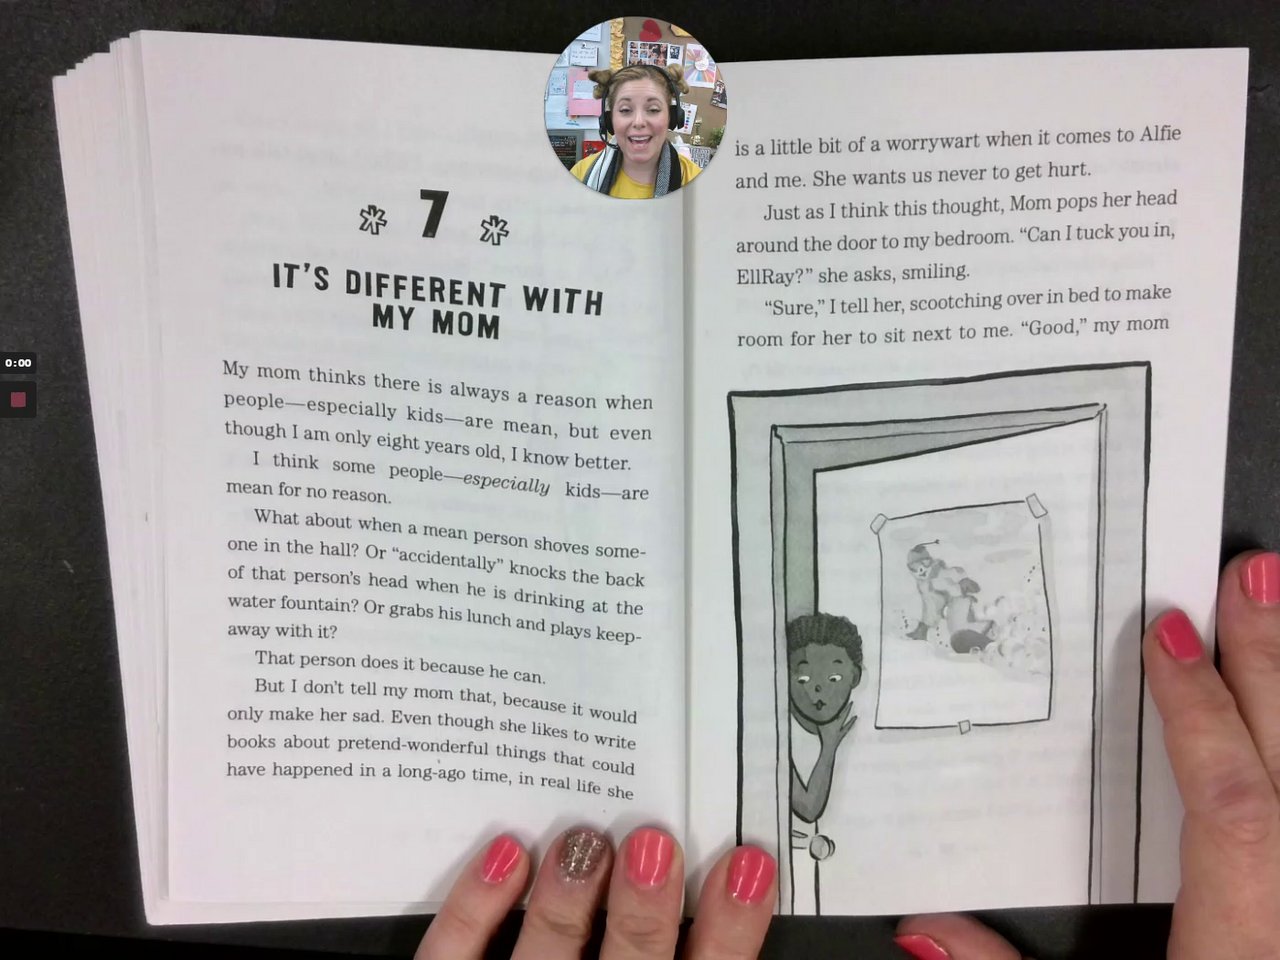 0:00
7
IT'S DIFFERENT WITH
MY MOM
My mom thinks there is always a reason when
people—especially kids—are mean, but even
though I am only eight years old, I know better.
I think some people—especially kids—are
mean for no reason.
What about when a mean person shoves some-
one in the hall? Or “accidentally” knocks the back
of that person's head when he is drinking at the
water fountain? Or grabs his lunch and plays keep-
away with it?
That person does it because he can.
But I don't tell my mom that, because it would
only make her sad. Even though she likes to write
books about pretend-wonderful things that could
have happened in a long-ago time, in real life she
is a little bit of a worrywart when it comes to Alfie
and me. She wants us never to get hurt.
Just as I think this thought, Mom pops her head
around the door to my bedroom. “Can I tuck you in,
EllRay?” she asks, smiling.
“Sure,” I tell her, scootching over in bed to make
room for her to sit next to me. “Good,” my mom